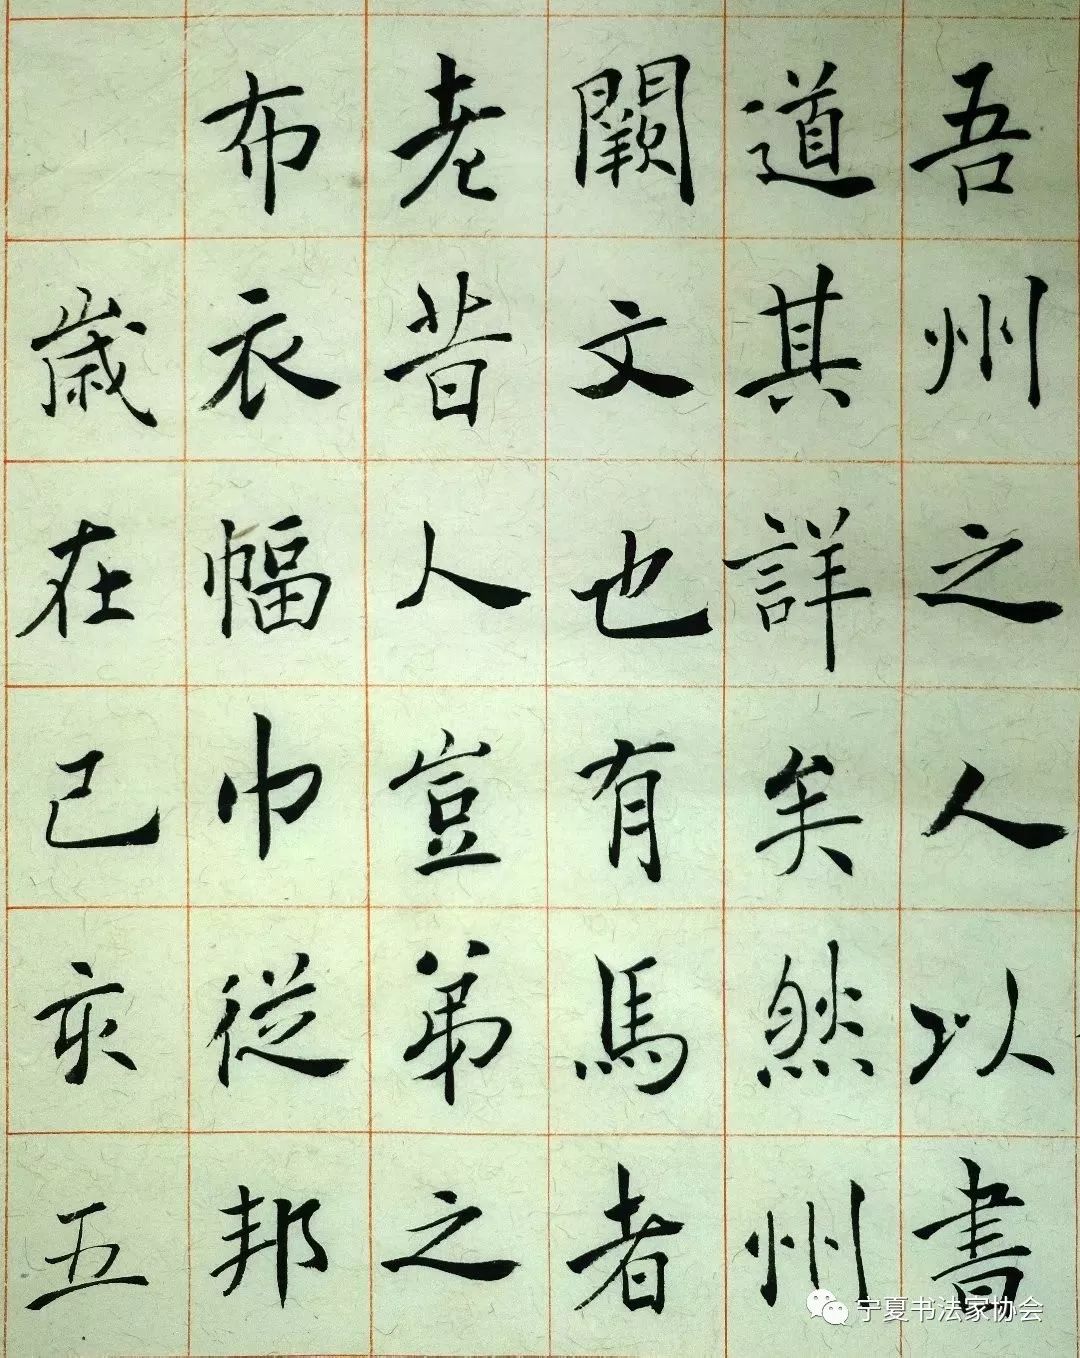 吾州之人以書
道其詳矣然州
闕文也有馬者
老昔人豈弟之
布衣幅巾從邦
歲在己亥五
宁夏书法家协会